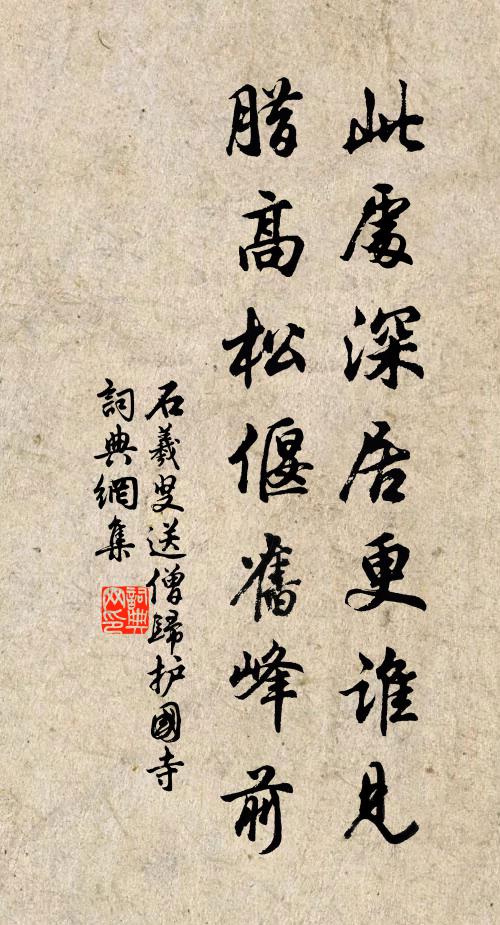 此處深居更誰見
腊高松偃舊峰前
石羲叟送僧歸护國寺
詞典網集
詞典网印